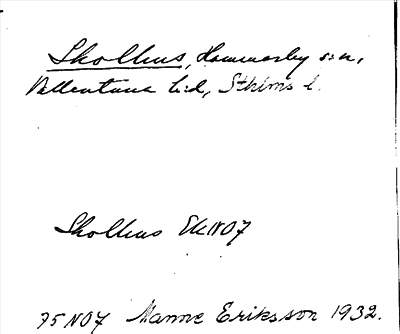 Skolhus, Hammarby s:n,
Vallentuna h:d, Sthlms l.
Skolhus Ek NO7
75 NO7 Manne Eriksson 1932.